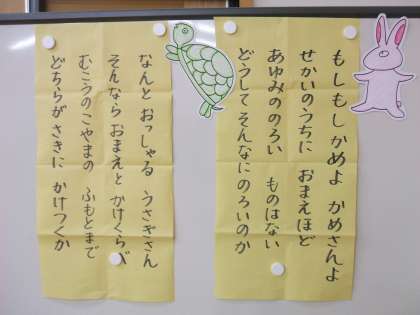 もしもし かめよ かめさんよ
せかいのうちに おまえほど
あゆみの のろい ものはない
どうして そんなに のろいのか
なんと おっしゃる うさぎさん
そんなら おまえと かけくらべ
むこうの こやまの ふもとまで
どちらが さきに かけつくか